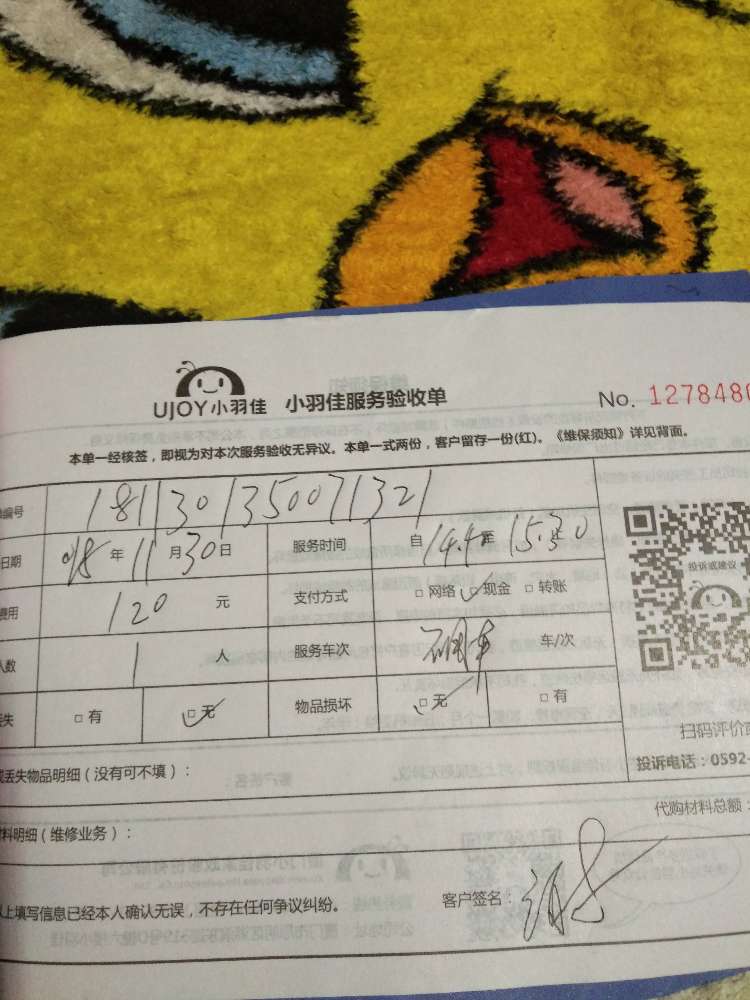 UJOY小羽佳 小羽佳服务验收单 No. 1278486
本单一经核签，即视为对本次服务验收无异议。本单一式两份，客户留存一份(红)。《维保须知》详见背面。
编号 1811301350071321
日期 018 年 11 月 30 日 服务时间 自 14.45 至 15:30
费用 120 元 支付方式 □ 网络 □ 现金 □ 转账
人数 1 人 服务车次 车/次
丢失 □ 有 □ 无 物品损坏 □ 无 □ 有
投诉或建议
扫码评价
投诉电话：0592-
丢失物品明细（没有可不填）：
代购材料总额：
材料明细（维修业务）：
以上填写信息已经本人确认无误，不存在任何争议纠纷。 客户签名：